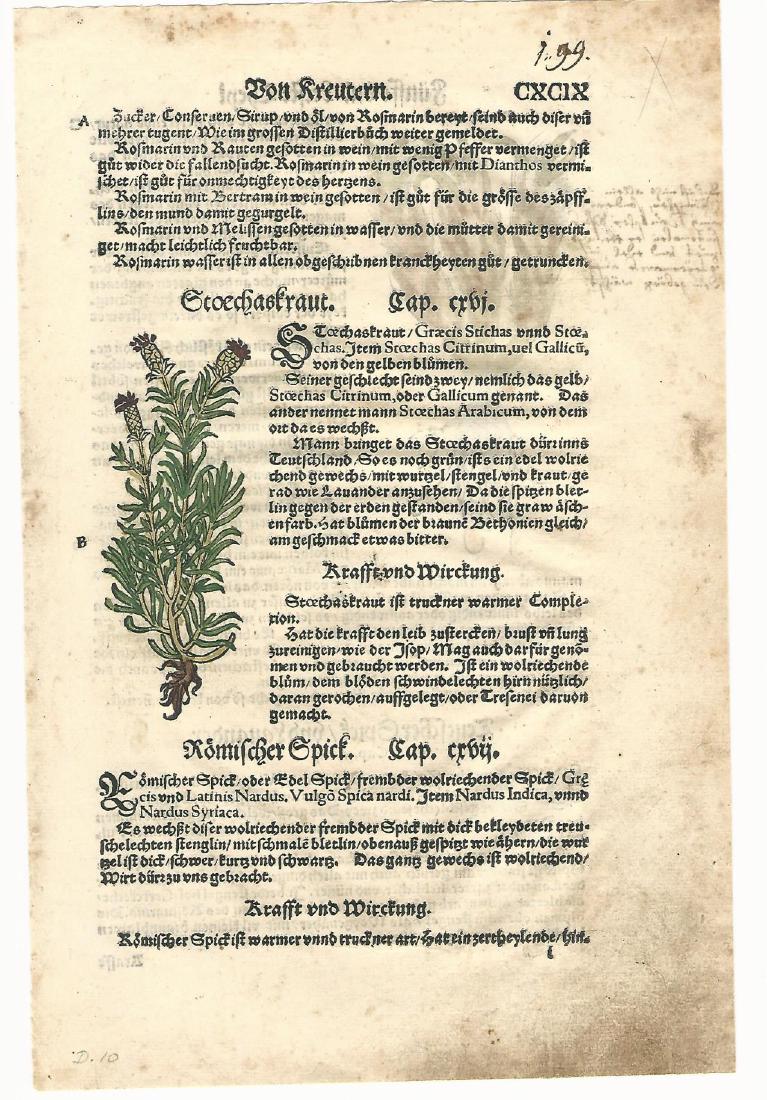 199.
Von Kreutern. CXCIX
A Zucker/Conseruen/Sirup/vnd öl/von Rosmarin bereyt/seind auch diser vñ
mehrer tugent/Wie im grossen Distillierbůch weiter gemeldet.
Rosmarin vnd Rauten gesotten in wein/mit wenig Pfeffer vermenget/ist
gůt wider die fallendsucht. Rosmarin in wein gesotten/mit Dianthos vermi-
schet/ist gůt für onmechtigkeyt des hertzens.
Rosmarin mit Bertram in wein gesotten/ist gůt für die grösse des zäpff-
lins/den mund damit gegurgelt.
Rosmarin vnd Melissen gesotten in wasser/vnd die můtter damit gereini-
get/macht leichtlich fruchtbar.
Rosmarin wasser ist in allen obgeschribnen kranckheyten gůt/getruncken.
Stœchaskraut. Cap. cxvj.
STœchaskraut/Græcis Stichas vnnd Stœ-
chas. Item Stœchas Citrinum, uel Gallicũ,
von den gelben blůmen.
Seiner geschlecht seind zwey/nemlich das gelb/
Stœchas Citrinum, oder Gallicum genant. Das
ander nennet mann Stœchas Arabicum, von dem
ort da es wechßt.
Mann bringet das Stœchaskraut dürr inns
Teutschland/So es noch grün/ists ein edel wolrie
chend gewechs/mit wurtzel/stengel/vnd kraut/ge
rad wie Lauander anzusehen/Da die spitzen blet-
lin gegen der erden gestanden/seind sie graw äsch-
enfarb. Hat blůmen der braunẽ Bethonien gleich/
B am geschmack etwas bitter.
Krafft vnd Wirckung.
Stœchaskraut ist truckner warmer Comple-
xion.
Hat die krafft den leib zustercken/brust vñ lung
zureinigen/wie der Isop/Mag auch darfür genõ-
men vnd gebraucht werden. Ist ein wolriechende
blům/dem blöden schwindelechten hirn nützlich/
daran gerochen/auffgelegt/oder Tresenei daruon
gemacht.
Römischer Spick. Cap. cxvij.
Römischer Spick/oder Edel Spick/frembder wolriechender Spick/Grę
cis vnd Latinis Nardus. Vulgò Spica nardi. Item Nardus Indica, vnnd
Nardus Syriaca.
Es wechßt diser wolriechender frembder Spick mit dick bekleydeten treu-
schelechten stenglin/mit schmalẽ bletlin/obenauß gespitzt wie ähern/die wur
tzel ist dick/schwer/kurtz vnd schwartz. Das gantz gewechs ist wolriechend/
Wirt dürr zu vns gebracht.
Krafft vnd Wirckung.
Römischer Spick ist warmer vnnd truckner art/Hat ein zertheylende/hin-
l
D. 10